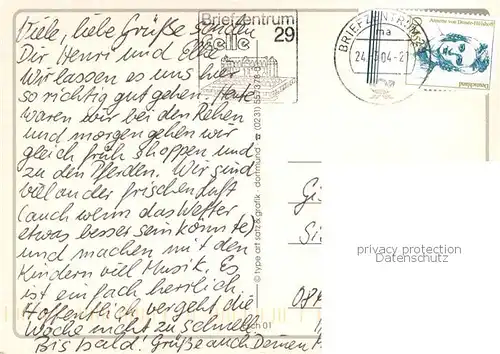 Viele, liebe Grüße senden
Dir Henri und
Wir lassen es uns hier
so richtig gut gehen. Heute
waren wir bei den Rehen
und morgen gehen wir
gleich früh shoppen und
zu den Pferden. Wir sind
viel an der frischen Luft
(auch wenn das Wetter
etwas besser sein könnte)
und machen mit den
Kindern viel Musik. Es
ist einfach herrlich
Hoffentlich vergeht die
Woche nicht zu schnell.
Bis bald! Grüße auch Deinen
Briefzentrum
29
elle
BRIEFZENTRUM
ma
24
04-2
Annette von Droste-Hülshoff
Deutschland
© type art satz & grafik · dortmund · ☎ (0231) 557378-0
ch 01
privacy protection
Datenschutz